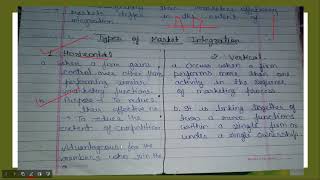 markets differ in the extent of
integration.
Types of Market Integration
1. Horizontal
a. when a firm gains
control over other firms
performing similar
marketing functions.
b. Purpose → To reduce
their effective no
→ To reduce the
extent of competition
Advantageous for the
members who join the
2. Vertical
a. Occurs when a firm
performs more than one
activity in the sequence
of marketing process
b. It is linking together of
two or more functions
within a single firm or
under a single ownership.